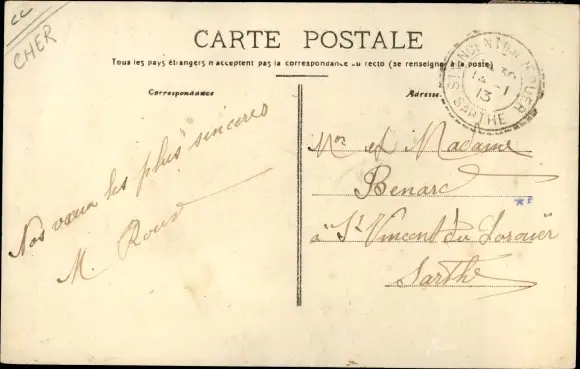 CC
CHER
CARTE POSTALE
Tous les pays étrangers n'acceptent pas la correspondance au recto (se renseigner à la poste)
Correspondance
Adresse
Nos vœux les plus sincères
M. Roux
Mr et Madame
Benard
à St Vincent du Lorouër
Sarthe
ST VINCENT DU LOROUER
13
SARTHE
*F